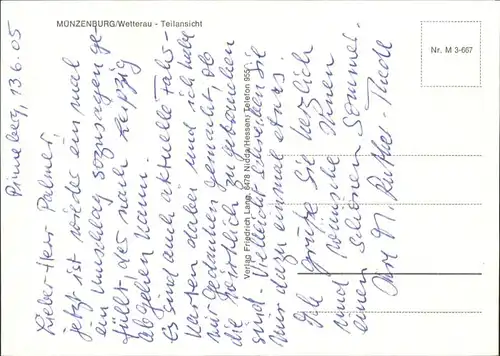 MÜNZENBURG/Wetterau - Teilansicht
Nr. M 3-667
Verlag Friedrich Lang, 6478 Nidda/Hessen, Telefon 955
Pinneberg, 13.6.05
Lieber Herr Palmer,
jetzt ist wieder einmal
ein Umschlag sozusagen ge-
füllt der nach Leipzig
abgehen kann.
Es sind auch aktuelle Fahr-
karten dabei und ich habe
mir Gedanken gemacht, ob
die wirklich zu gebrauchen
sind. Vielleicht schreiben Sie
mir dazu einmal etwas.
Ich grüße Sie herzlich
und wünsche Ihnen
einen schönen Sommer.
Ihre M.